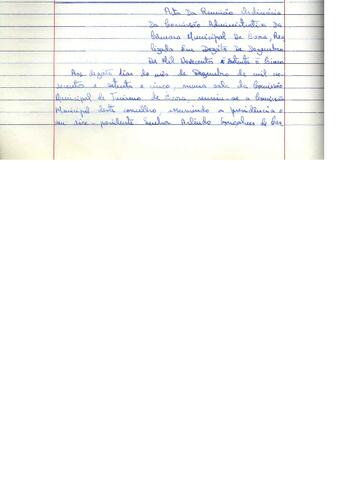 Ata Da Reunião Ordinária
Da Comissão Administrativa Da
Câmara Municipal De Évora, Rea
lizada Em Dezoito De Dezembro
De Mil Novecentos E Setenta E Cinco
Aos dezoito dias do mês de Dezembro de mil no-
vecentos e setenta e cinco, numa sala da Comissão
Municipal de Turismo de Évora, reuniu-se a Comissão
Municipal deste concelho assumindo a presidência o
seu vice-presidente Senhor Arlindo Gonçalves